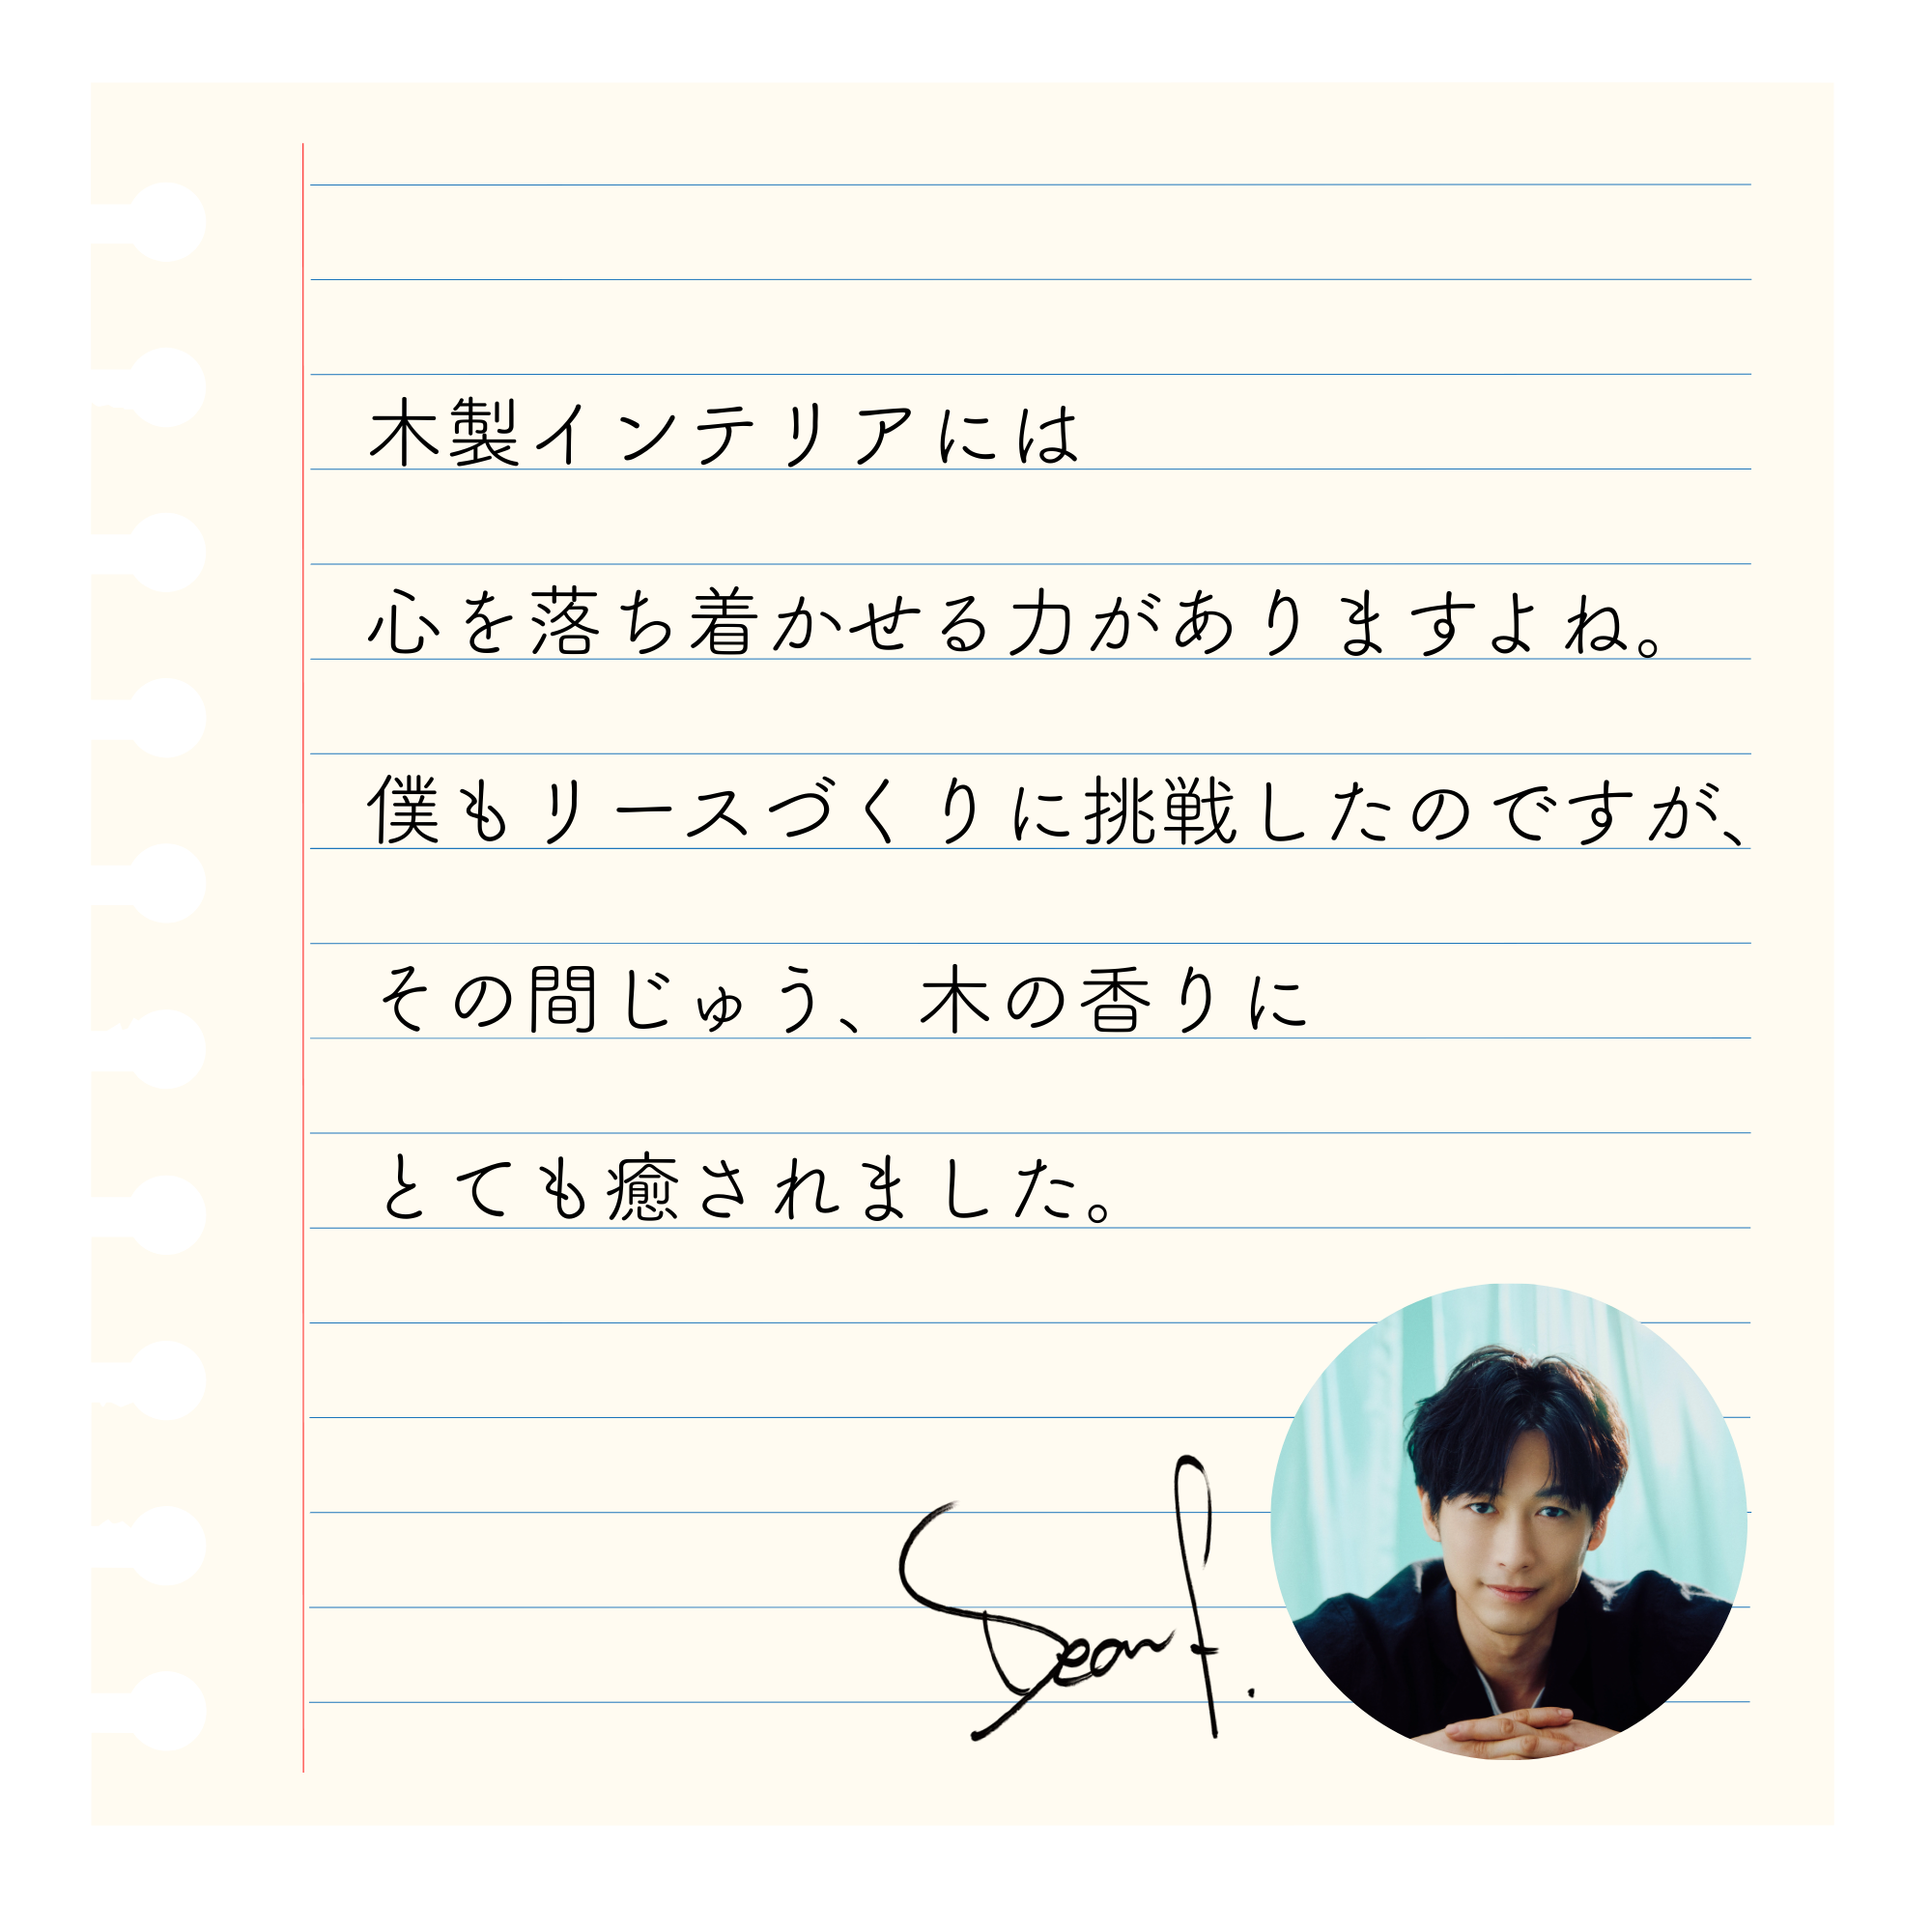 木製インテリアには
心を落ち着かせる力がありますよね。
僕もリースづくりに挑戦したのですが、
その間じゅう、木の香りに
とても癒されました。
Dean f.